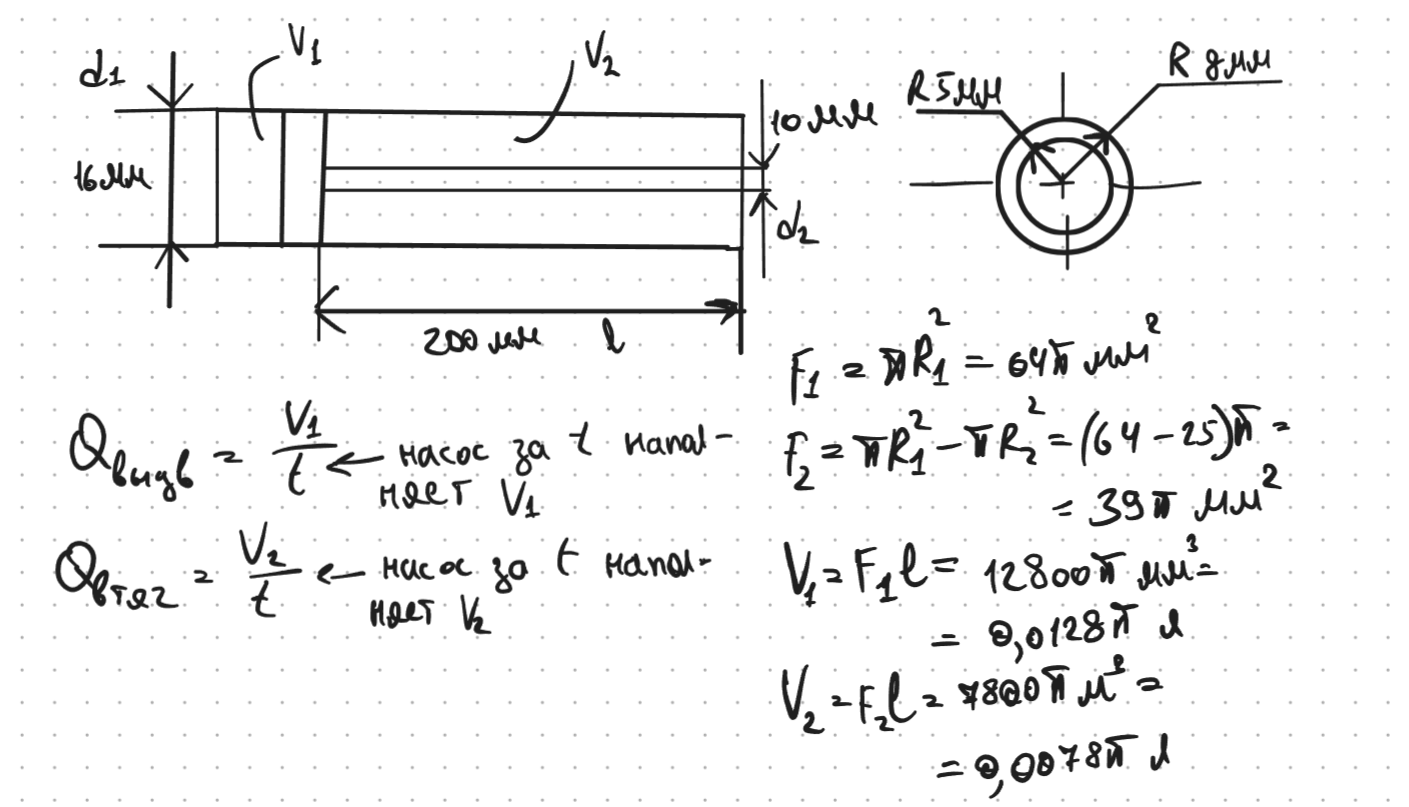 d₁
V₁
V₂
16мм
10мм
d₂
200мм l
R5мм
R 8мм
Qвыдв = V₁/t ← насос за t напол-
няет V₁
Qвтяг = V₂/t ← насос за t напол-
няет V₂
F₁ = πR₁² = 64π мм²
F₂ = πR₁² - πR₂² = (64 - 25)π =
= 39π мм²
V₁ = F₁l = 12800π мм³ =
= 0,0128π л
V₂ = F₂l = 7800π м³ =
= 0,0078π л